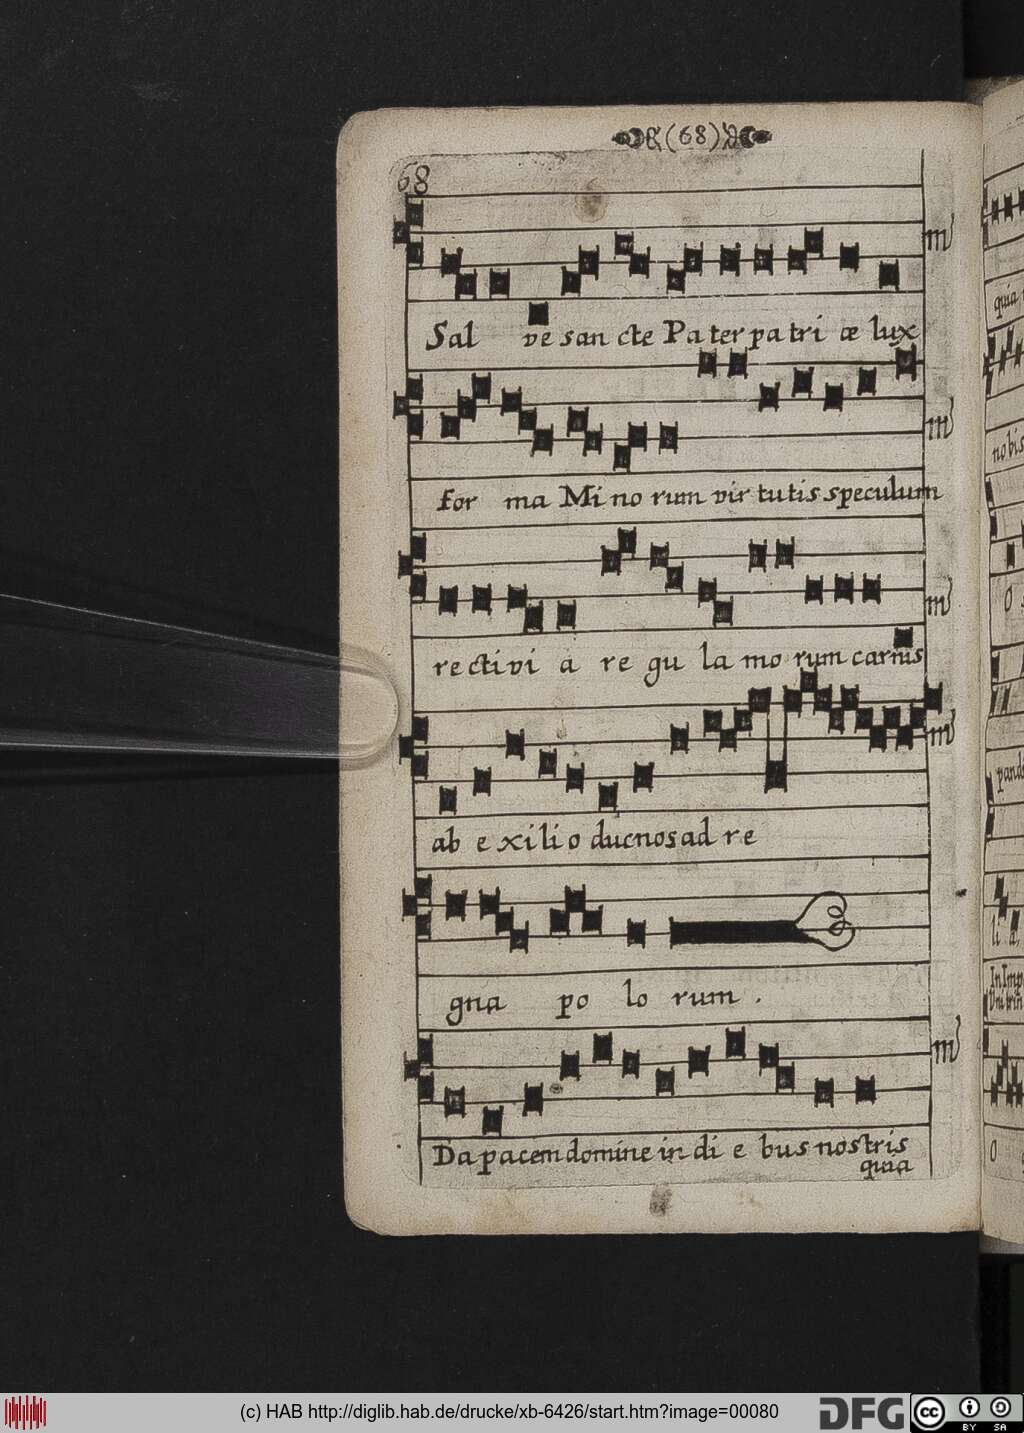 (68)
68
Sal ve san cte Pa ter pa tri æ lux
for ma Mi no rum vir tutis speculum
re cti vi a re gu la mo rum carnis
ab e xi li o duc nos ad re
gna po lo rum .
Da pacem domine in di e bus nostris
quia
quia
no bis
O
pand
li a,
In Imp
O
(c) HAB http://diglib.hab.de/drucke/xb-6426/start.htm?image=00080
DFG
cc
BY SA